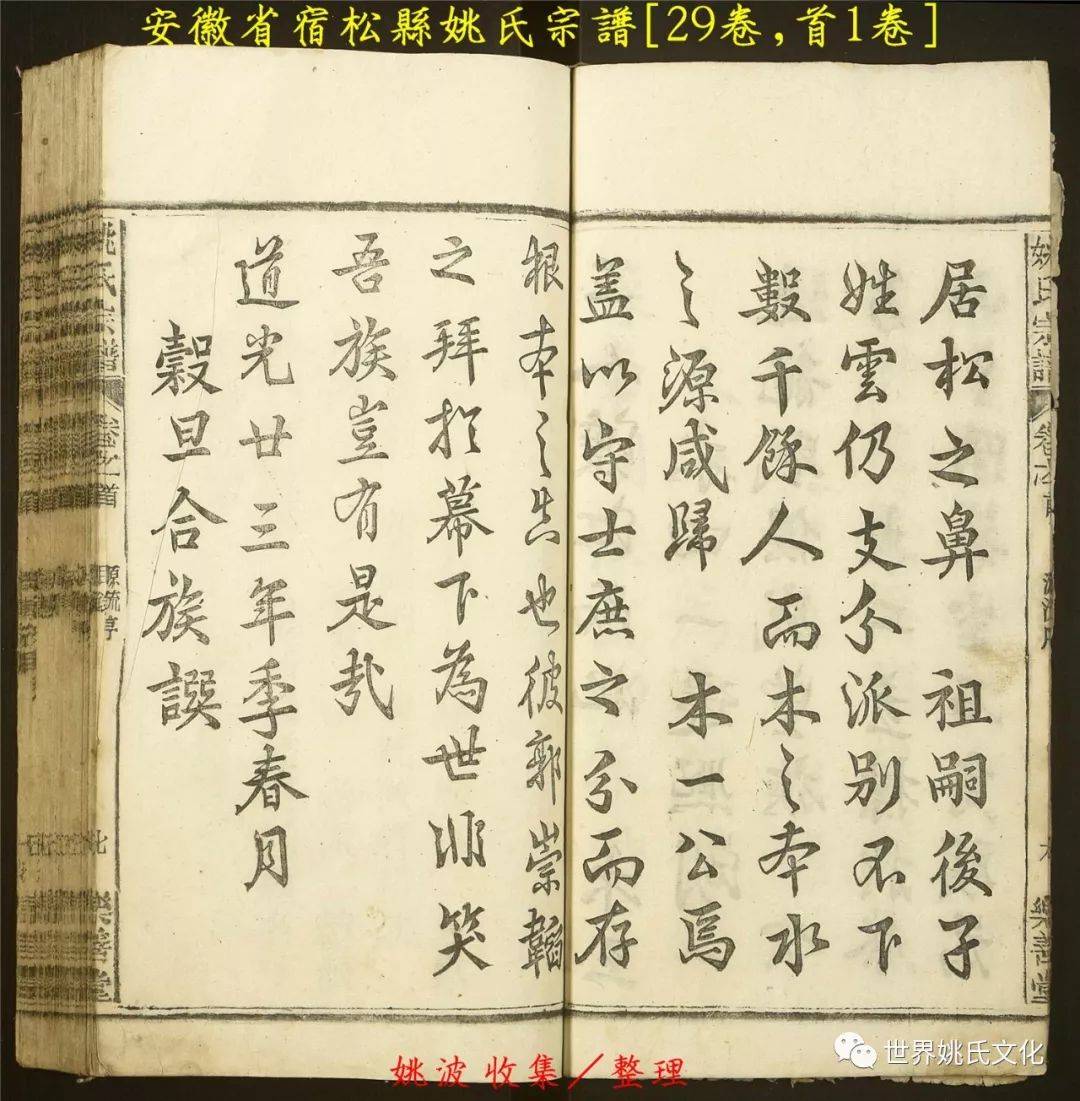 安徽省宿松縣姚氏宗譜[29卷,首1卷]
姚氏宗譜
卷之首
源流序
樂善堂
居松之鼻祖嗣後子
姓雲仍支分派别不下
數千餘人而木之本水
之源咸歸一木一公焉
盖以守士庶之分而存
根本之真也彼郭崇韜
之拜於墓下為世非笑
吾族豈有是哉
道光廿三年季春月
穀旦合族譔
姚氏宗譜
卷之首
源流序
樂善堂
姚波收集/整理
世界姚氏文化